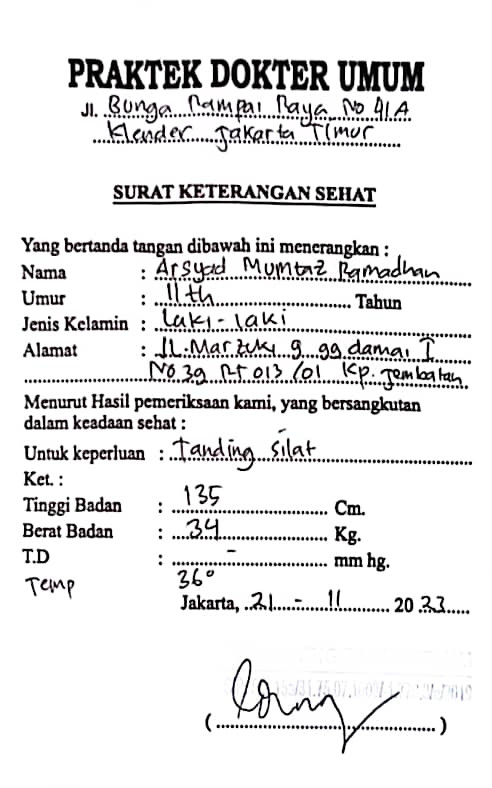 PRAKTEK DOKTER UMUM
Jl. Bunga Rampai Raya No 41A
Klender Jakarta Timur
SURAT KETERANGAN SEHAT
Yang bertanda tangan dibawah ini menerangkan :
Nama : Arsyad Mumtaz Ramadhan
Umur : 11th Tahun
Jenis Kelamin : Laki-laki
Alamat : JL.Marzuki 9 gg damai I
No 39 RT 013/01 Kp. Jembatan
Menurut Hasil pemeriksaan kami, yang bersangkutan
dalam keadaan sehat :
Untuk keperluan : Tanding Silat
Ket. :
Tinggi Badan : 135 Cm.
Berat Badan : 34 Kg.
T.D : - mm hg.
Temp 36°
Jakarta, 21 - 11 2023